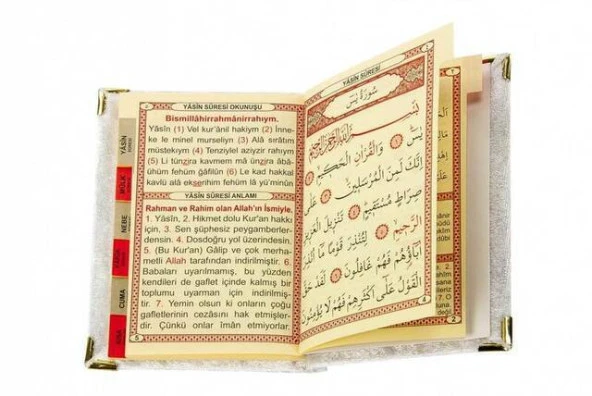 YÂSÎN SÛRESİ OKUNUŞU
Bismillâhirrahmânirrahıym.
Yâsîn (1) Vel kur'ânil hakiym (2) İnne-
ke le minel murseliyn (3) Alâ sırâtım
müstekiym (4) Tenziylel aziyzir rahıym
(5) Li tünzira kavmem mâ ünzira âbâ-
ühüm fehüm ğâfilûn (6) Le kad hakkal
kavlü alâ ekserihim fehüm lâ yü'minûn
YÂSÎN SÛRESİ ANLAMI
Rahman ve Rahim olan Allah'ın İsmiyle.
1. Yâsîn, 2. Hikmet dolu Kur'an hakkı
için, 3. Sen şüphesiz peygamberler-
densin. 4. Dosdoğru yol üzerindesin.
5. (Bu Kur'an) Gâlip ve çok merha-
metli Allah tarafından indirilmiştir. 6.
Babaları uyarılmamış, bu yüzden
kendileri de gaflet içinde kalmış bir
toplumu uyarman için indirilmiş-
tir. 7. Yemin olsun ki onların çoğu
gafletlerinin cezasını hak etmişler-
dir. Çünkü onlar iman etmiyorlar.
5
YÂSÎN
MÜLK
NEBE
CUMA
YÂSÎN SÛRESİ
سُورَةُ يٰسٓ
بِسْمِ اللهِ الرَّحْمٰنِ الرَّحِيمِ
يٰسٓ وَالْقُرْاٰنِ الْحَكِيمِ
اِنَّكَ لَمِنَ الْمُرْسَلِينَ عَلٰى
صِرَاطٍ مُسْتَقِيمٍ تَنْزِيلَ الْعَزِيزِ
الرَّحِيمِ لِتُنْذِرَ قَوْمًا مَا اُنْذِرَ
اٰبَاؤُهُمْ فَهُمْ غَافِلُونَ لَقَدْ حَقَّ
الْقَوْلُ عَلٰى اَكْثَرِهِمْ فَهُمْ لَا يُؤْمِنُونَ
4
2